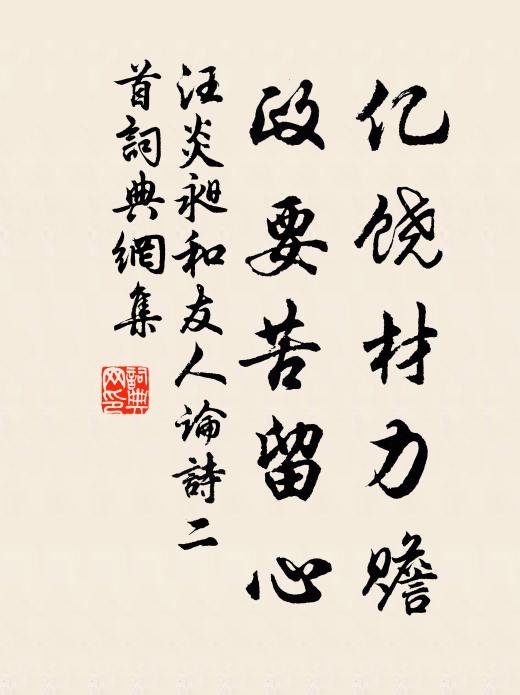 亿饶材力赡
政要苦留心
汪炎昶和友人論詩二
首詞典網集
詞典網印